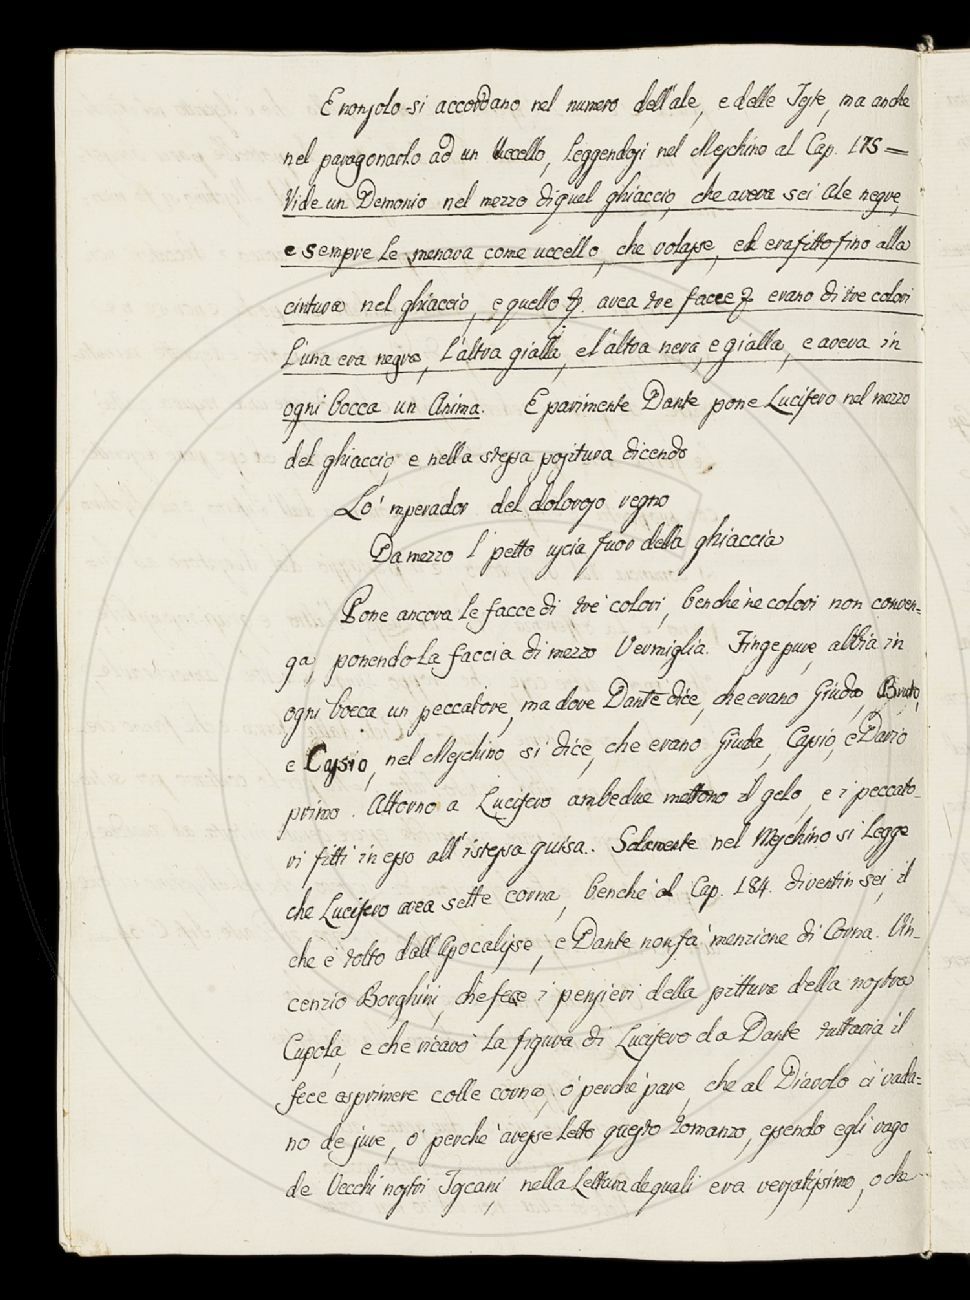 E non solo si accordano nel numero dell'ale, e delle Teste, ma anche
nel paragonarlo ad un Uccello, leggendosi nel Meschino al Cap. 175 =
Vide un Demonio nel mezzo di quel ghiaccio, che aveva sei Ale negre,
e sempre le menava come uccello, che volasse, ed era fitto fino alla
cintura nel ghiaccio, e quello avea tre facce erano di tre colori
l'una era negra, l'altra gialla, e l'altra nera, e gialla, e aveva in
ogni bocca un Anima. E parimente Dante pone Lucifero nel mezzo
del ghiaccio, e nella stessa positura dicendo
Lo' mperador del doloroso regno
Da mezzo l' petto uscia fuor della ghiaccia
Pone ancora le facce di tre colori, benchè ne colori non conven=
ga, ponendo la faccia di mezzo Vermiglia. Finge pure, abbia in
ogni bocca un peccatore, ma dove Dante dice, che erano Giuda, Bruto,
e Cassio, nel Meschino si dice, che erano Giuda, Cassio, e Dario
primo. Attorno a Lucifero ambedue mettono il gelo, e i peccato-
ri fitti in esso all'istessa guisa. Solamente nel Meschino si legge
che Lucifero avea sette corna, benchè al Cap. 184. diventin sei, il
che è tolto dall'Apocalisse, e Dante non fa menzione di Corna. Vin-
cenzio Borghini, che fece i pensieri della pittura della nostra
Cupola, e che ricavò la figura di Lucifero da Dante tuttavia il
fece esprimere colle corna, ò perchè pare, che al Diavolo ci vada=
no de jure, ò perchè avesse letto questo romanzo, essendo egli vago
de Vecchi nostri Toscani, nella Lettura de quali era versatissimo, o che